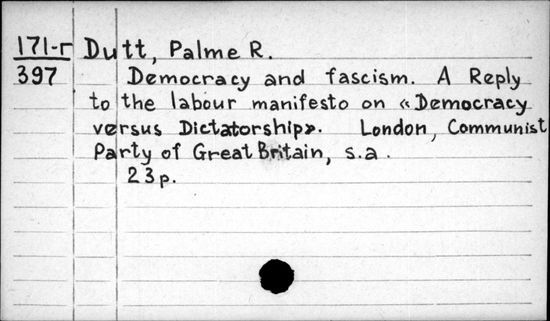 171-г Dutt, Palme R.
397 Democracy and fascism. A Reply
to the labour manifesto on «Democracy
versus Dictatorship». London, Communist
Party of Great Britain, s.a.
23p.